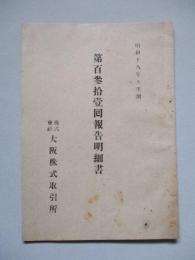 昭和十九年上半期
第百参拾壹回報告明細書
株式會社 大阪株式取引所